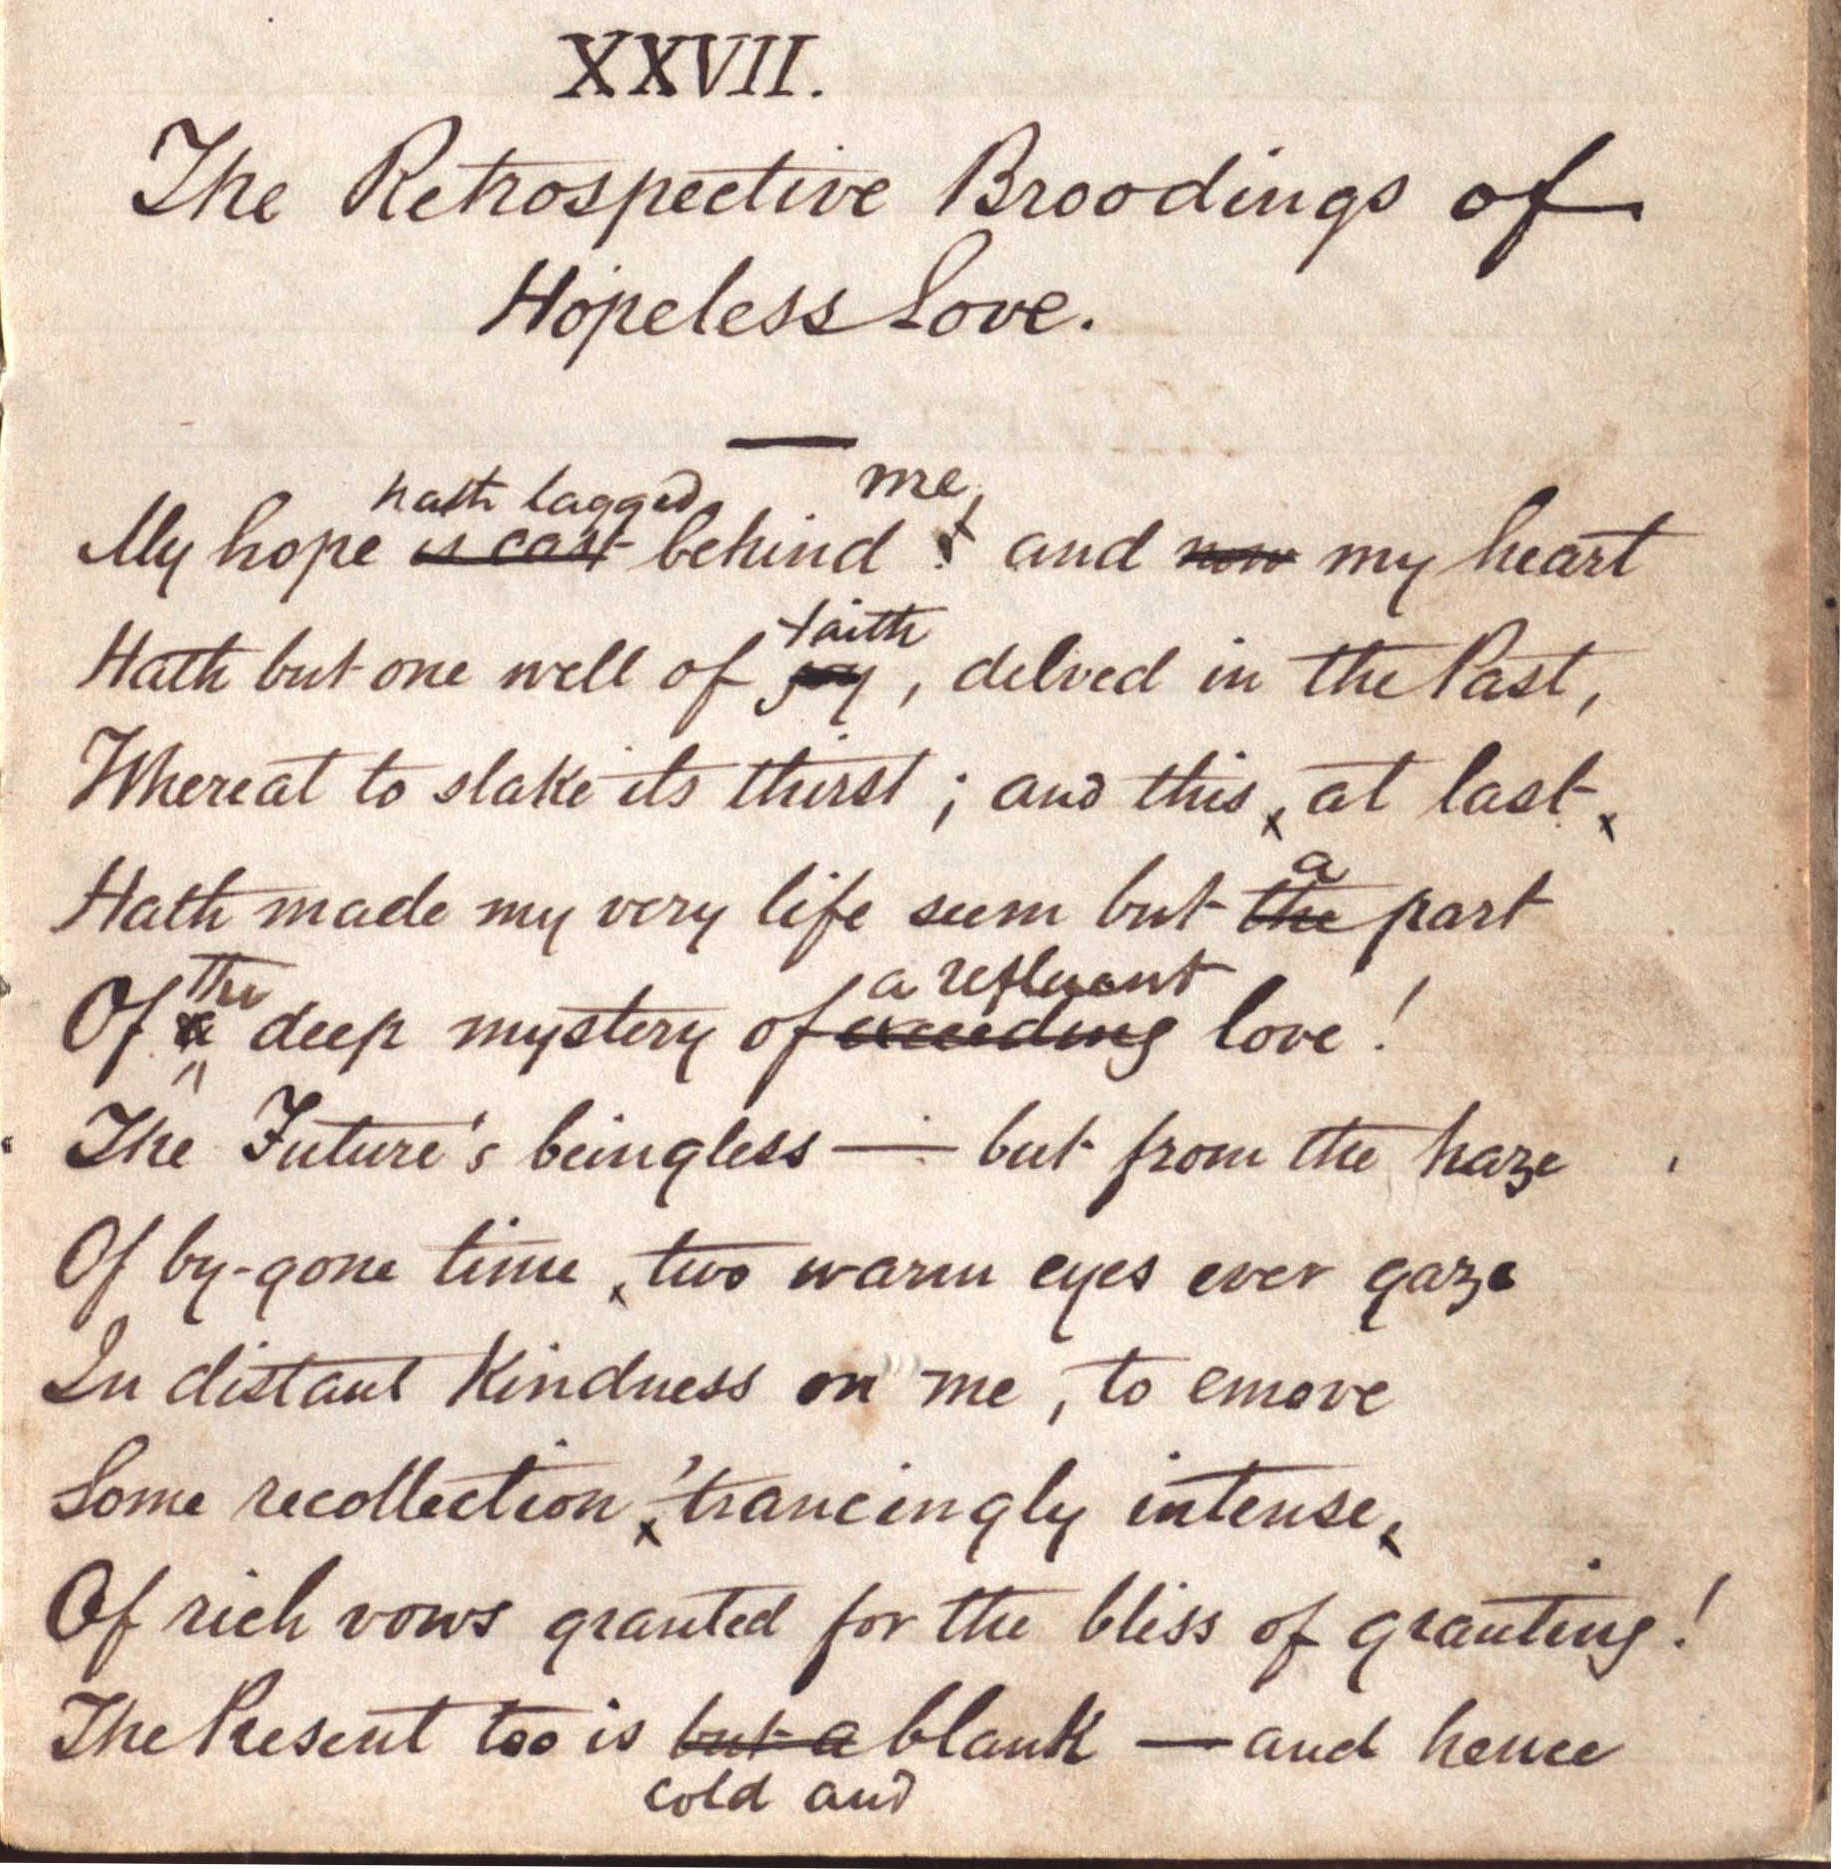 XXVII.
The Retrospective Broodings of
Hopeless Love.
hath lagged me,
My hope is cast behind and now my heart
faith
Hath but one well of joy, delved in the Past,
Whereat to slake its thirst; and this, at last,
a
Hath made my very life seem but the part
the a refluent
Of a deep mystery of exceeding love!
The Future's beingless — but from the haze
Of by-gone time, two warm eyes ever gaze
In distant kindness on me, to emove
Some recollection, 'trancingly intense,
Of rich vows granted for the bliss of granting!
The Present too is but a blank — and hence
cold and